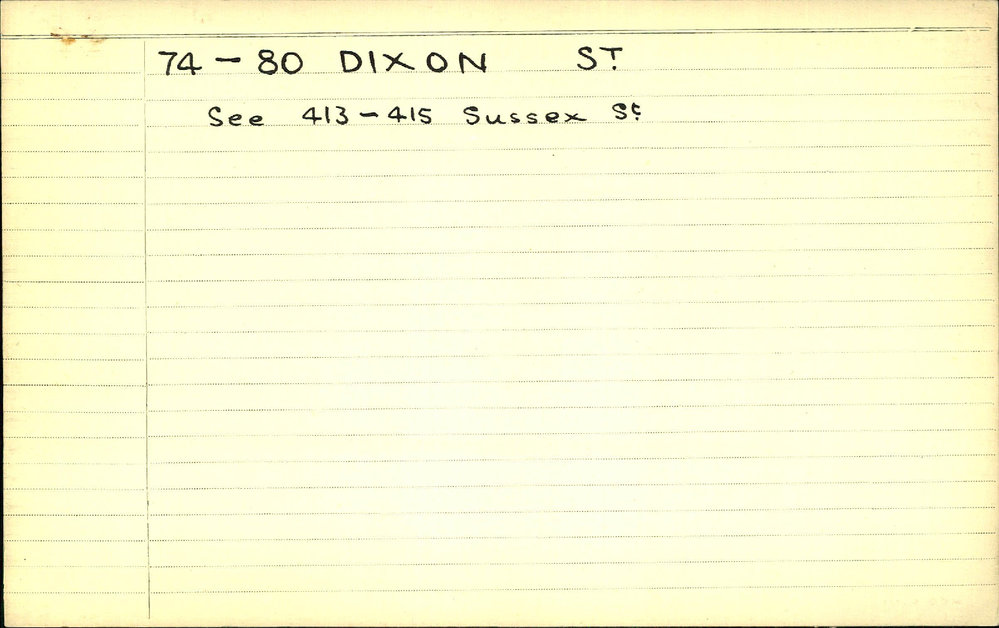 74 - 80 DIXON ST.
See 413 - 415 Sussex St.